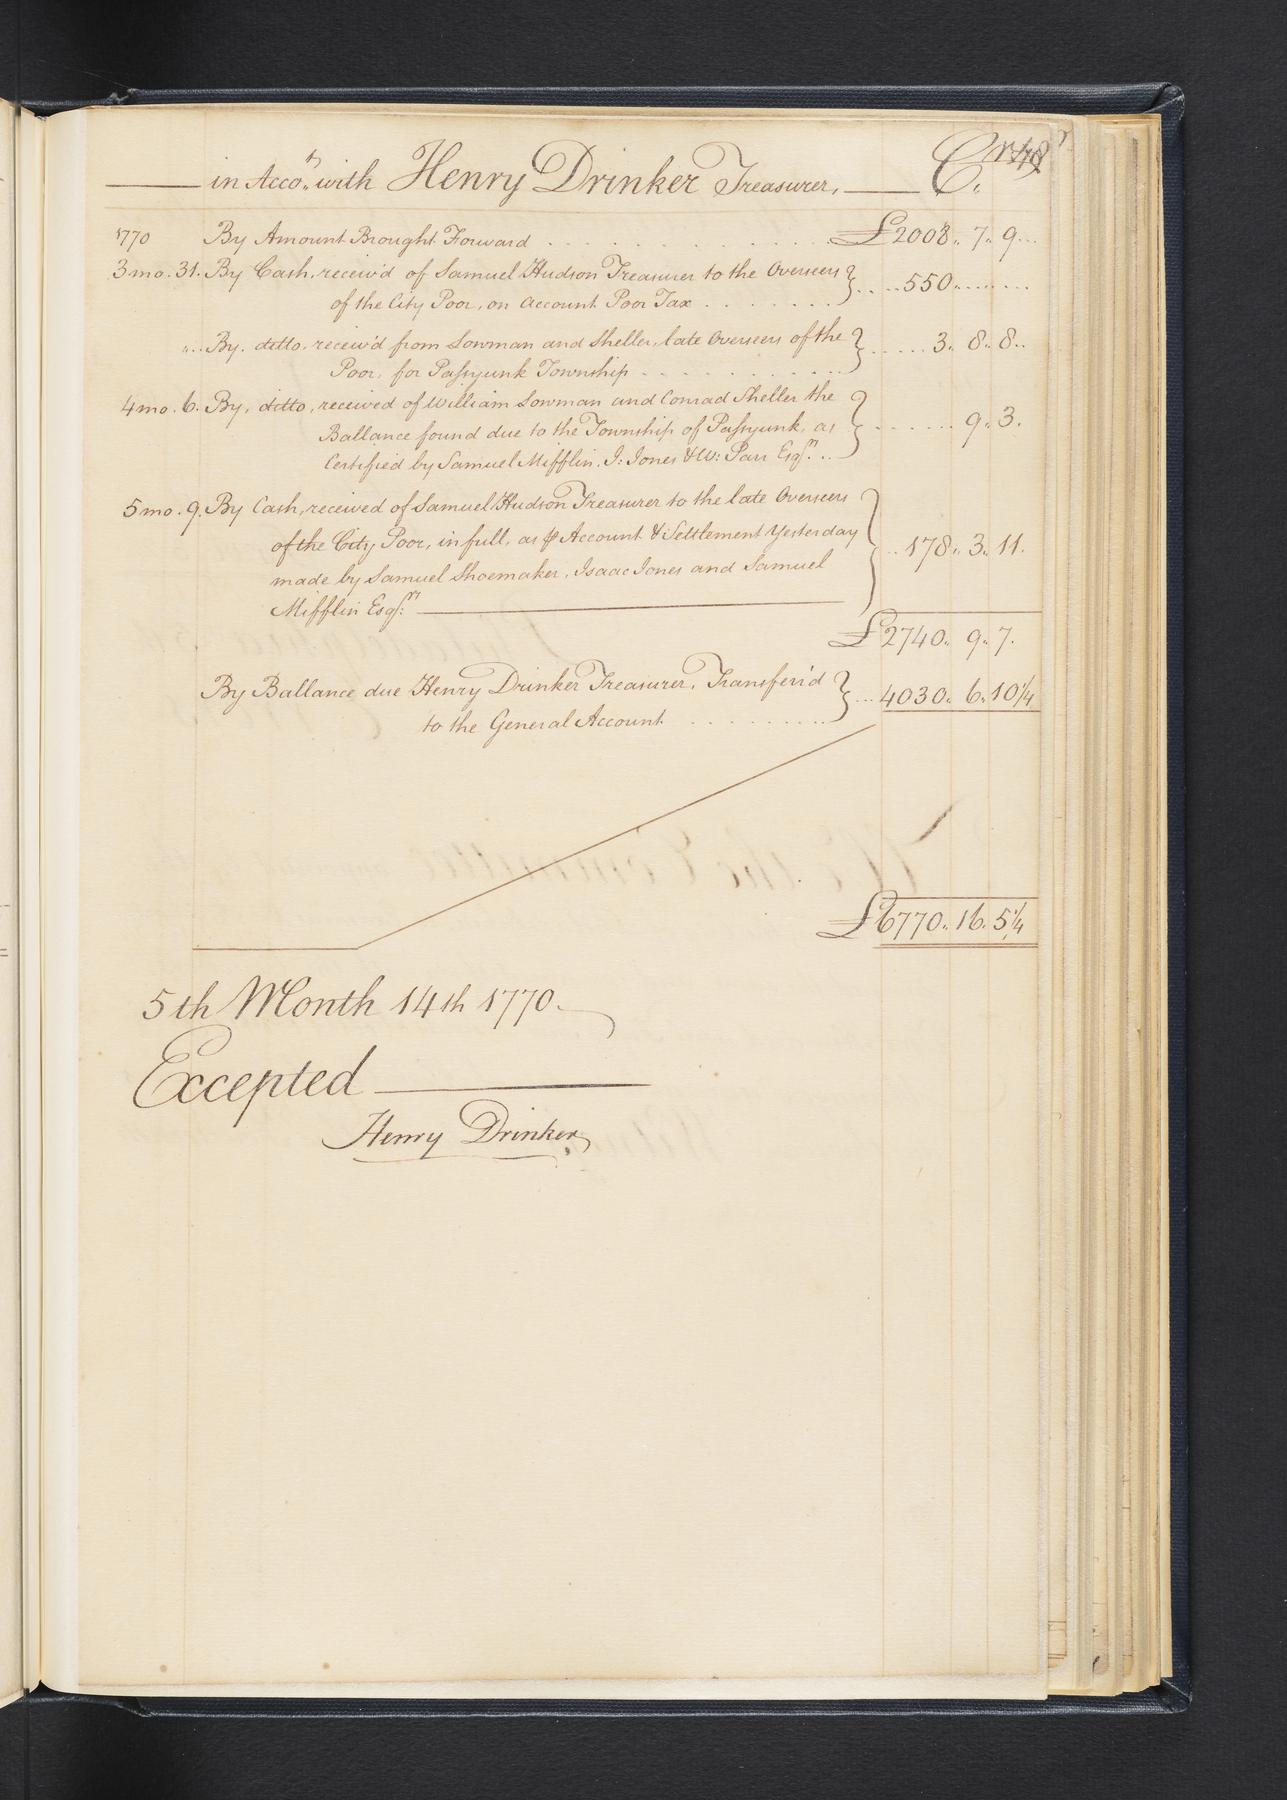 in Acco.t with Henry Drinker Treasurer, Cr.
1770 By Amount Brought Forward £2008.. 7.. 9
3 mo. 31. By Cash, receiv'd of Samuel Hudson Treasurer to the Overseers
of the City Poor, on account Poor Tax 550
".. By. ditto. receiv'd from Lowman and Sheller, late Overseers of the
Poor, for Passyunk Township 3.. 8.. 8..
4 mo. 6. By, ditto, received of William Lowman and Conrad Sheller the
Ballance found due to the Township of Passyunk, as 9.. 3.
Certified by Samuel Mifflin, I: Jones & W: Parr Esqrs.
5 mo. 9. By Cash, received of Samuel Hudson Treasurer to the late Overseers
of the City Poor, in full, as ⅌ Account & Settlement Yesterday
made by Samuel Shoemaker, Isaac Jones and Samuel 178.. 3.. 11.
Mifflin Esqrs.
£2740.. 9.. 7.
By Ballance due Henry Drinker Treasurer, Transferr'd 4030.. 6.. 10 1/4
to the General Account
£6770.. 16.. 5 1/4
5th Month 14th 1770.
Excepted
Henry Drinker